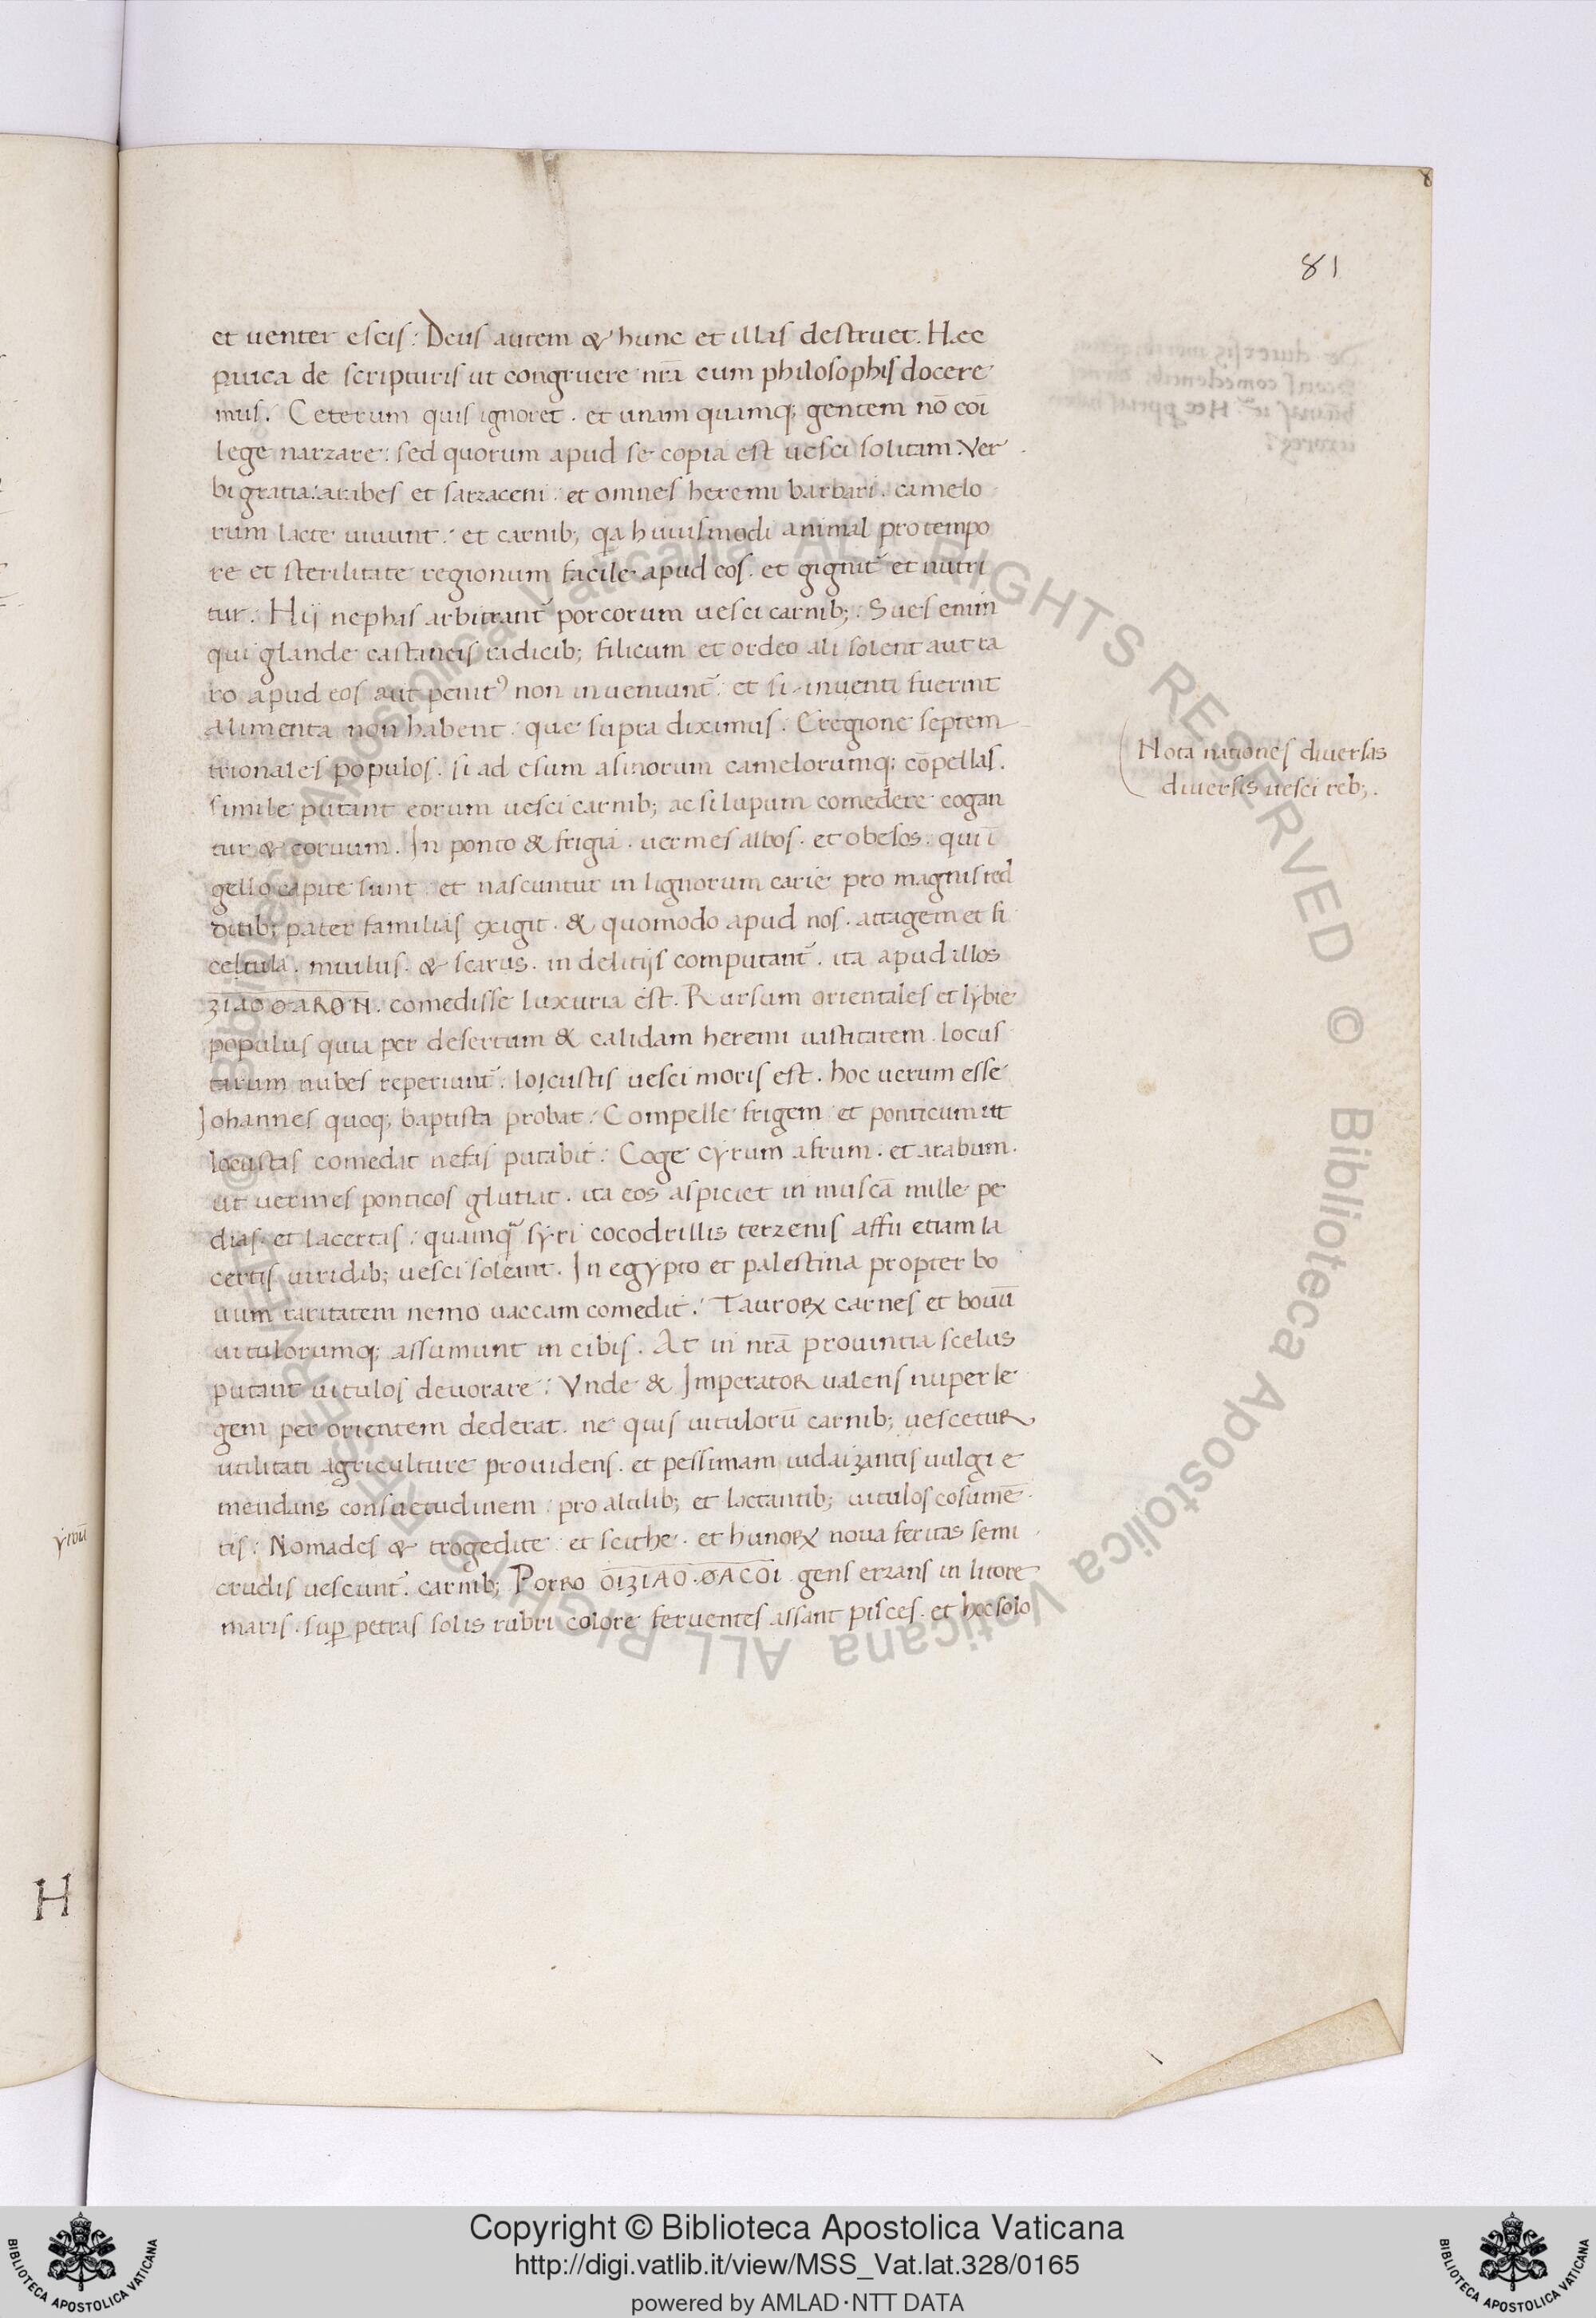 81
et uenter escis: Deus autem & hunc et illas destruet. Hec
pauca de scripturis ut congruere nr̄a cum philosophis docere
mus. Ceterum quis ignoret. et unam quamq; gentem nō cōi
lege narzare: sed quorum apud se copia est uesci solitam. Ver
bi gratia: arabes et sarzaceni: et omnes heremi barbari. camelo
rum lacte uiuunt: et carnib; qa huiusmodi animal pro tempo
re et sterilitate regionum facile apud eos. et gignit᷑ et nutri
tur. Hij nephas arbitrant᷑ porcorum uesci carnib;. Sues enim
qui glande castaneis radicib; filicum et ordeo ali solent aut ra
ro apud eos aut penitꝰ non inueniunt᷑: et si inuenti fuerint
alimenta non habent. que supra diximus. Eregione septem
trionales populos. si ad esum asinorum camelorumq; cōpellas.
simile putant eorum uesci carnib; ac si lupum comedere cogan
tur & coruum. In ponto & frigia. uermes albos. et obesos. qui ī
gello capite sunt. et nascuntur in lignorum carie pro magnis red
ditib; pater familias exigit. & quomodo apud nos. attagem et fi
cetula. mulus. & scarus. in delitijs computant᷑. ita apud illos
comedisse luxuria est. Rursum orientales et lybie
populus quia per desertum & calidam heremi uastitatem. locus
tarum nubes reperiunt᷑. locustis uesci moris est. hoc uerum esse
Johannes quoq; baptista probat: Compelle frigem et ponticum ut
locustas comedat nefas putabit. Coge cyrum afrum. et arabum.
ut uermes ponticos glutiat. ita eos aspiciet in muscā mille pe
dias. et lacertas. quamq᷑ syri cocodrillis terzenis affri etiam la
certis uiridib; uesci soleant. In egypto et palestina propter bo
uum raritatem nemo uaccam comedit. Taurorꝝ carnes et bouū
uitulorumq; assumunt in cibis. At in nr̄a prouintia scelus
putant uitulos deuorare: Vnde & Imperator ualens nuper le
gem per orientem dederat. ne quis uitulorū carnib; uescetur
utilitati agriculture prouidens. et pessimam iudaizantis uulgi e
mendans consuetudinem: pro altilib; et lactantib; uitulos cosumē
tis. Nomades & trogedite et scithe. et hunorꝝ noua feritas semi
crudis uescunt᷑. carnib; Porro gens erzans in litore
maris. suꝑ petras solis rubri colore feruentes assant pisces. et hoc solo
Nota nationes diuersas
diuersis uesci reb;.
H
Copyright © Biblioteca Apostolica Vaticana
http://digi.vatlib.it/view/MSS_Vat.lat.328/0165
powered by AMLAD·NTT DATA
BIBLIOTECA APOSTOLICA VATICANA
BIBLIOTECA APOSTOLICA VATICANA
© Biblioteca Apostolica Vaticana ALL RIGHTS RESERVED